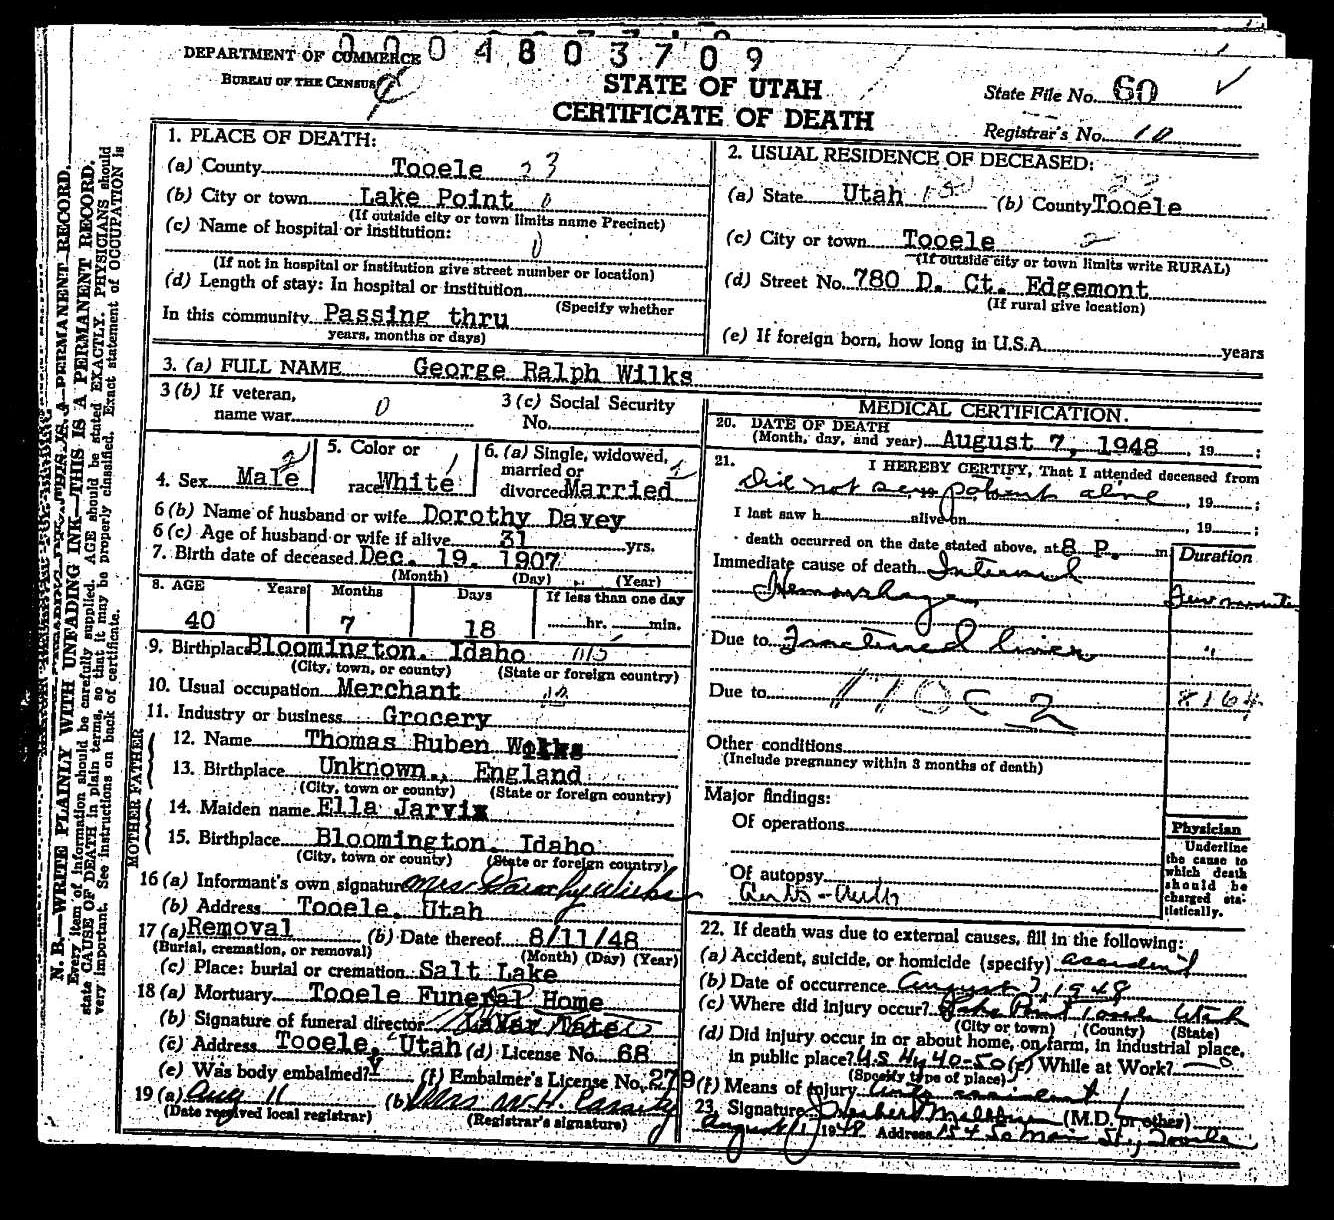 0004803709
DEPARTMENT OF COMMERCE
BUREAU OF THE CENSUS
STATE OF UTAH
CERTIFICATE OF DEATH
State File No. 60
Registrar's No. 10
N. B.—WRITE PLAINLY WITH UNFADING INK—THIS IS A PERMANENT RECORD.
Every item of information should be carefully supplied. AGE should be stated EXACTLY. PHYSICIANS should
state CAUSE OF DEATH in plain terms, so that it may be properly classified. Exact statement of OCCUPATION is
very important. See instructions on back of certificate.
1. PLACE OF DEATH:
(a) County Tooele 23
(b) City or town Lake Point 0
(If outside city or town limits name Precinct)
(c) Name of hospital or institution:
0
(If not in hospital or institution give street number or location)
(d) Length of stay: In hospital or institution
(Specify whether
In this community Passing thru
years, months or days)
2. USUAL RESIDENCE OF DECEASED:
(a) State Utah (b) County Tooele
(c) City or town Tooele 2
(If outside city or town limits write RURAL)
(d) Street No. 780 D. Ct. Edgemont
(If rural give location)
(e) If foreign born, how long in U.S.A. years
3. (a) FULL NAME George Ralph Wilks
3 (b) If veteran,
name war 0
3 (c) Social Security
No.
4. Sex Male 2
5. Color or
race White 1
6. (a) Single, widowed,
married or
divorced Married
6 (b) Name of husband or wife Dorothy Davey
6 (c) Age of husband or wife if alive 31 yrs.
7. Birth date of deceased Dec. 19, 1907
(Month) (Day) (Year)
8. AGE Years Months Days If less than one day
40 7 18 hr. min.
9. Birthplace Bloomington, Idaho
(City, town, or county) (State or foreign country)
10. Usual occupation Merchant
11. Industry or business Grocery
FATHER
12. Name Thomas Ruben Wilks
13. Birthplace Unknown., England
(City, town or county) (State or foreign country)
MOTHER
14. Maiden name Ella Jarvix
15. Birthplace Bloomington, Idaho
(City, town or county) (State or foreign country)
16 (a) Informant's own signature Mrs. Dorothy Wilks
(b) Address Tooele, Utah
17 (a) Removal (b) Date thereof 8/11/48
(Burial, cremation, or removal) (Month) (Day) (Year)
(c) Place: burial or cremation Salt Lake
18 (a) Mortuary Tooele Funeral Home
(b) Signature of funeral director
(c) Address Tooele, Utah (d) License No. 68
(e) Was body embalmed? (f) Embalmer's License No. 279
19 (a) Aug 11 (b) Mrs W.H. Cassity
(Date received local registrar) (Registrar's signature)
MEDICAL CERTIFICATION.
20. DATE OF DEATH
(Month, day, and year) August 7, 1948, 19 ;
21. I HEREBY CERTIFY, That I attended deceased from
Did not see patient alive, 19 ;
I last saw h alive on , 19 ;
death occurred on the date stated above, at 8 P. m
Duration
Immediate cause of death Internal
Hemorhage Few minutes
Due to Fractured liver "
Due to 170 C 2 8164
Other conditions
(Include pregnancy within 3 months of death)
Major findings:
Of operations
Of autopsy
Auto-Auto
Physician
Underline
the cause to
which death
should be
charged sta-
tistically.
22. If death was due to external causes, fill in the following:
(a) Accident, suicide, or homicide (specify) accident
(b) Date of occurrence August 7, 1948
(c) Where did injury occur? Lake Point Tooele Utah
(City or town) (County) (State)
(d) Did injury occur in or about home, on farm, in industrial place,
in public place? U.S. Hy 40-50 (e) While at Work? 0
(Specify type of place)
(f) Means of injury Auto accident
23. Signature (M.D. or other)
August 11 1948 Address 154 So Main St, Tooele